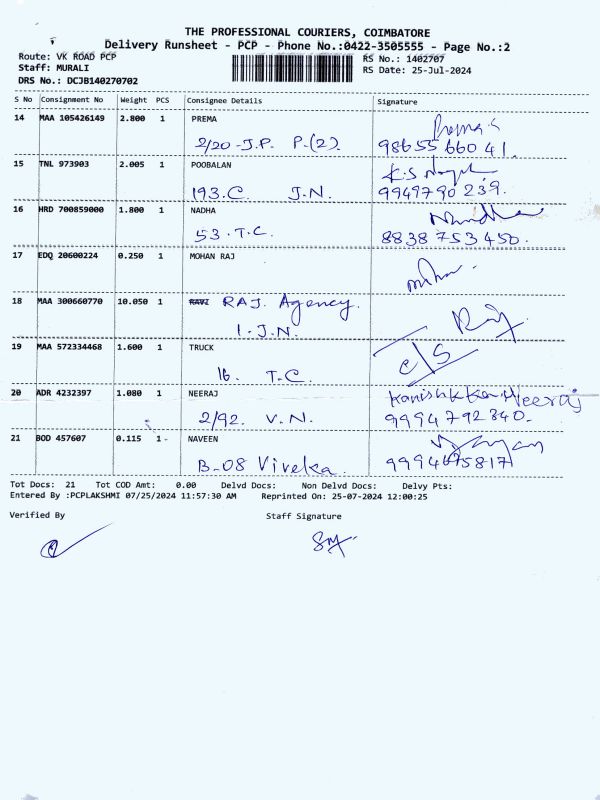 THE PROFESSIONAL COURIERS, COIMBATORE
Delivery Runsheet - PCP - Phone No.:0422-3505555 - Page No.:2
Route: VK ROAD PCP
RS No.: 1402707
Staff: MURALI
RS Date: 25-Jul-2024
DRS No.: DCJB140270702
S No Consignment No Weight PCS Consignee Details Signature
14 MAA 105426149 2.800 1 PREMA Prema.s
2/20-J.P. P.(2). 98655 66041.
15 TNL 973903 2.005 1 POOBALAN K.S
193.C J.N. 9949790239.
16 HRD 700859000 1.800 1 NADHA Nandha
53.T.C. 8838753450.
17 EDQ 20600224 0.250 1 MOHAN RAJ
18 MAA 300660770 10.050 1 RAVI RAJ. Agency. Raj.
1.J.N.
19 MAA 572334468 1.600 1 TRUCK C/S
16. T.C.
20 ADR 4232397 1.080 1 NEERAJ Neeraj
2/92. V.N. 9994792840.
21 BOD 457607 0.115 1 NAVEEN
B-08 Viveka.
Tot Docs: 21 Tot COD Amt: 0.00 Delvd Docs: Non Delvd Docs: Delvy Pts:
Entered By :PCPLAKSHMI 07/25/2024 11:57:30 AM Reprinted On: 25-07-2024 12:00:25
Verified By Staff Signature